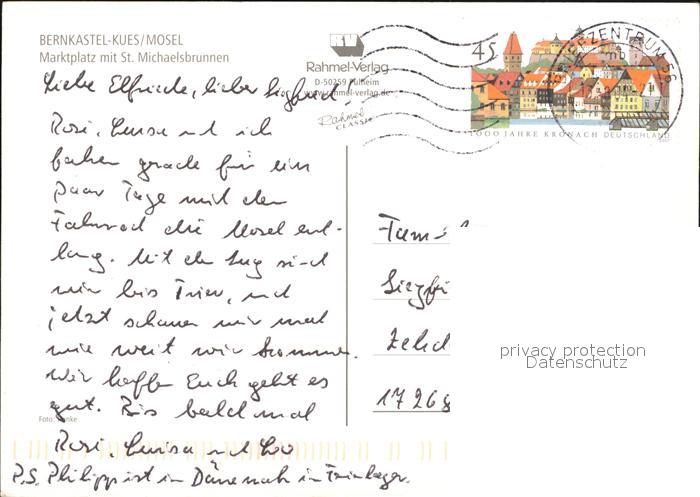 BERNKASTEL-KUES/MOSEL
Marktplatz mit St. Michaelsbrunnen
Rahmel-Verlag
D-50259 Pulheim
www.rahmel-verlag.de
Rahmel
CLASSIC
45
BRIEFZENTRUM
1000 JAHRE KRONACH DEUTSCHLAND
Liebe Elfriede, lieber Siegfried
Rosi, Luisa und ich
fahren grade für ein
paar Tage mit dem
Fahrrad die Mosel ent-
lang. Mit dem Zug sind
wir bis Trier, und
jetzt schauen wir mal
wie weit wir kommen.
Wir hoffen Euch geht es
gut. Bis bald mal
Rosi, Luisa und
P.S. Philipp ist in Dänemark im Ferienlager.
Fam.
Siegfri
Zehd
17268
Foto:
privacy protection
Datenschutz